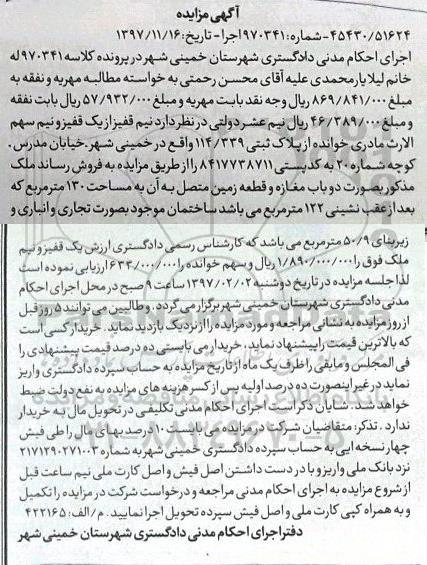 آگهی مزایده
۴۵۴۳۰/۵۱۶۲۴-شماره: ۹۷۰۳۴۱اجرا- تاریخ: ۱۳۹۷/۱۱/۱۶
اجرای احکام مدنی دادگستری شهرستان خمینی شهر در پرونده کلاسه ۹۷۰۳۴۱له
خانم لیلا یارمحمدی علیه آقای محسن رحمتی به خواسته مطالبه مهریه و نفقه به
مبلغ ۸۶۹/۸۴۱/۰۰۰ ریال وجه نقد بابت مهریه و مبلغ ۵۷/۹۳۲/۰۰۰ ریال بابت نفقه
و مبلغ ۴۶/۳۸۹/۰۰۰ ریال نیم عشر دولتی در نظر دارد نیم قفیز از یک قفیز و نیم سهم
الارث مادری خوانده از پلاک ثبتی ۱۱۴/۳۳۹ واقع در خمینی شهر. خیابان مدرس.
کوچه شماره ۲۰ به کدپستی ۸۴۱۷۷۳۸۷۱۱ را از طریق مزایده به فروش رساند ملک
مذکور بصورت دو باب مغازه و قطعه زمین متصل به آن به مساحت ۱۳۰ مترمربع که
بعد از عقب نشینی ۱۲۲ مترمربع می باشد ساختمان موجود بصورت تجاری و انباری و
زیربنای ۵۰/۹ مترمربع می باشد که کارشناس رسمی دادگستری ارزش یک قفیز و نیم
ملک فوق را ۱/۸۹۰/۰۰۰/۰۰۰ ریال و سهم خوانده را ۶۳۳/۰۰۰/۰۰۰ارزیابی نموده است
لذا جلسه مزایده در تاریخ دوشنبه ۱۳۹۷/۰۲/۰۲ ساعت ۹ صبح در محل اجرای احکام
مدنی دادگستری شهرستان خمینی شهر برگزار می گردد. وطالبین می توانند ۵ روز قبل
از روز مزایده به نشانی مراجعه و مورد مزایده را از نزدیک بازدید نماید. خریدار کسی است
که بالاترین قیمت را پیشنهاد نماید، خریدار می بایستی ده درصد قیمت پیشنهادی را
فی المجلس و مابقی را ظرف یک ماه از تاریخ مزایده به حساب سپرده دادگستری واریز
نماید در غیر اینصورت ده درصد اولیه پس از کسر هزینه های مزایده به نفع دولت ضبط
خواهد شد. شایان ذکر است اجرای احکام مدنی تکلیفی در تحویل مال به خریدار
ندارد . تذکر: متقاضیان شرکت در مزایده می بایست ۱۰ درصد بهای مال را طی فیش
چهار نسخه ایی به حساب سپرده دادگستری خمینی شهر به شماره ۲۱۷۱۲۹۰۲۷۱۰۰۳
نزد بانک ملی واریز و با در دست داشتن اصل فیش و اصل کارت ملی نیم ساعت قبل
از شروع مزایده به اجرای احکام مدنی مراجعه و درخواست شرکت در مزایده را تکمیل
و به همراه کپی کارت ملی و اصل فیش سپرده تحویل اجرا نمایید. م/الف: ۴۲۲۱۶۵
دفتر اجرای احکام مدنی دادگستری شهرستان خمینی شهر